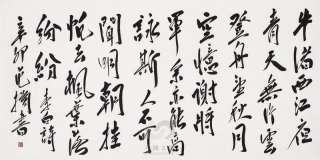 牛渚西江夜
青天無片雲
登舟望秋月
空憶謝將
軍余亦能高
詠斯人不可
聞明朝挂
帆去楓葉落
紛紛 李白詩
辛卯